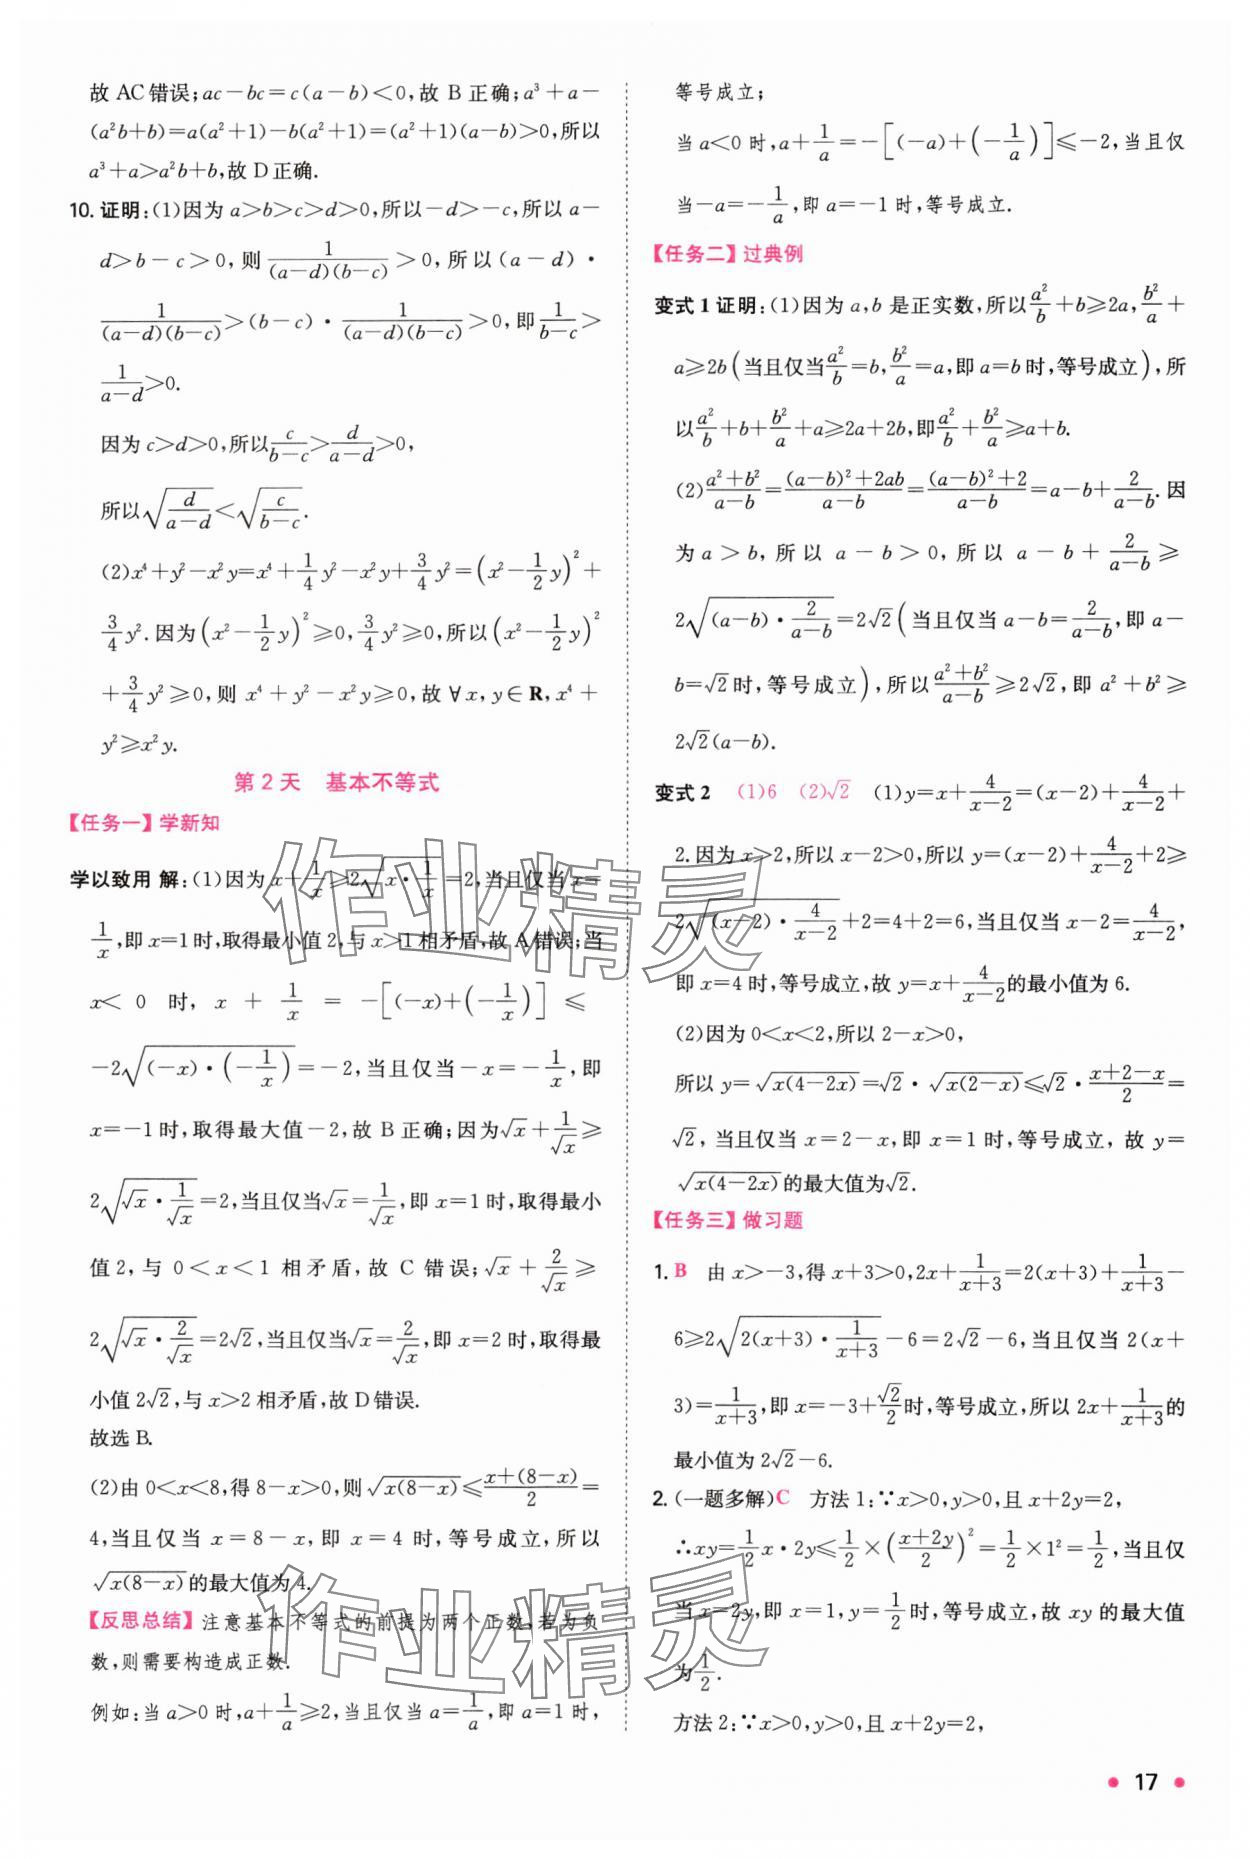 故 AC 错误;ac－bc＝c(a－b)＜0,故 B 正确;a³＋a－
(a²b＋b)＝a(a²＋1)－b(a²＋1)＝(a²＋1)(a－b)＞0,所以
a³＋a＞a²b＋b,故 D 正确.
10. 证明:(1)因为 a＞b＞c＞d＞0,所以－d＞－c,所以 a－
d＞b－c＞0,则 1/((a－d)(b－c)) ＞0,所以(a－d)·
1/((a－d)(b－c))＞(b－c)·1/((a－d)(b－c))＞0,即 1/(b－c)＞
1/(a－d)＞0.
因为 c＞d＞0,所以 c/(b－c)＞d/(a－d)＞0,
所以√(d/(a－d))＜√(c/(b－c)).
(2)x⁴＋y²－x²y＝x⁴＋1/4 y²－x²y＋3/4 y²＝(x²－1/2 y)²＋
3/4 y².因为(x²－1/2 y)²≥0,3/4 y²≥0,所以(x²－1/2 y)²
＋3/4 y²≥0,则 x⁴＋y²－x²y≥0,故∀x,y∈R,x⁴＋
y²≥x²y.
第 2 天 基本不等式
【任务一】学新知
学以致用 解:(1)因为 x＋1/x≥2√(x·1/x)＝2,当且仅当 x＝
1/x,即 x＝1 时,取得最小值 2,与 x＞1 相矛盾,故 A 错误;当
x＜0 时, x＋1/x＝－[(－x)＋(－1/x)]≤
－2√((－x)·(－1/x))＝－2,当且仅当－x＝－1/x,即
x＝－1 时,取得最大值－2,故 B 正确;因为√x＋1/√x≥
2√(√x·1/√x)＝2,当且仅当√x＝1/√x,即 x＝1 时,取得最小
值 2,与 0＜x＜1 相矛盾,故 C 错误;√x＋2/√x≥
2√(√x·2/√x)＝2√2,当且仅当√x＝2/√x,即 x＝2 时,取得最
小值 2√2,与 x＞2 相矛盾,故 D 错误.
故选 B.
(2)由 0＜x＜8,得 8－x＞0,则√(x(8－x))≤(x＋(8－x))/2＝
4,当且仅当 x＝8－x,即 x＝4 时,等号成立,所以
√(x(8－x))的最大值为 4.
【反思总结】注意基本不等式的前提为两个正数,若为负
数,则需要构造成正数.
例如:当 a＞0 时,a＋1/a≥2,当且仅当 a＝1/a,即 a＝1 时,
等号成立;
当 a＜0 时,a＋1/a＝－[(－a)＋(－1/a)]≤－2,当且仅
当－a＝－1/a,即 a＝－1 时,等号成立.
【任务二】过典例
变式 1 证明:(1)因为 a,b 是正实数,所以 a²/b＋b≥2a,b²/a＋
a≥2b(当且仅当 a²/b＝b,b²/a＝a,即 a＝b 时,等号成立),所
以 a²/b＋b＋b²/a＋a≥2a＋2b,即 a²/b＋b²/a≥a＋b.
(2)(a²＋b²)/(a－b)＝((a－b)²＋2ab)/(a－b)＝((a－b)²＋2)/(a－b)＝a－b＋2/(a－b).因
为 a＞b,所以 a－b＞0,所以 a－b＋2/(a－b)≥
2√((a－b)·2/(a－b))＝2√2(当且仅当 a－b＝2/(a－b),即 a－
b＝√2时,等号成立),所以(a²＋b²)/(a－b)≥2√2,即 a²＋b²≥
2√2(a－b).
变式 2 (1)6 (2)√2 (1)y＝x＋4/(x－2)＝(x－2)＋4/(x－2)＋
2.因为 x＞2,所以 x－2＞0,所以 y＝(x－2)＋4/(x－2)＋2≥
2√((x－2)·4/(x－2))＋2＝4＋2＝6,当且仅当 x－2＝4/(x－2),
即 x＝4 时,等号成立,故 y＝x＋4/(x－2)的最小值为 6.
(2)因为 0＜x＜2,所以 2－x＞0,
所以 y＝√(x(4－2x))＝√2·√(x(2－x))≤√2·(x＋2－x)/2＝
√2,当且仅当 x＝2－x,即 x＝1 时,等号成立,故 y＝
√(x(4－2x))的最大值为√2.
【任务三】做习题
1. B 由 x＞－3,得 x＋3＞0,2x＋1/(x＋3)＝2(x＋3)＋1/(x＋3)－
6≥2√(2(x＋3)·1/(x＋3))－6＝2√2－6,当且仅当 2(x＋
3)＝1/(x＋3),即 x＝－3＋√2/2时,等号成立,所以 2x＋1/(x＋3)的
最小值为 2√2－6.
2. (一题多解)C 方法 1:∵x＞0,y＞0,且 x＋2y＝2,
∴xy＝1/2 x·2y≤1/2×((x＋2y)/2)²＝1/2×1²＝1/2,当且仅
当 x＝2y,即 x＝1,y＝1/2时,等号成立,故 xy 的最大值
为1/2.
方法 2:∵x＞0,y＞0,且 x＋2y＝2,
17
作业精灵
作业精灵